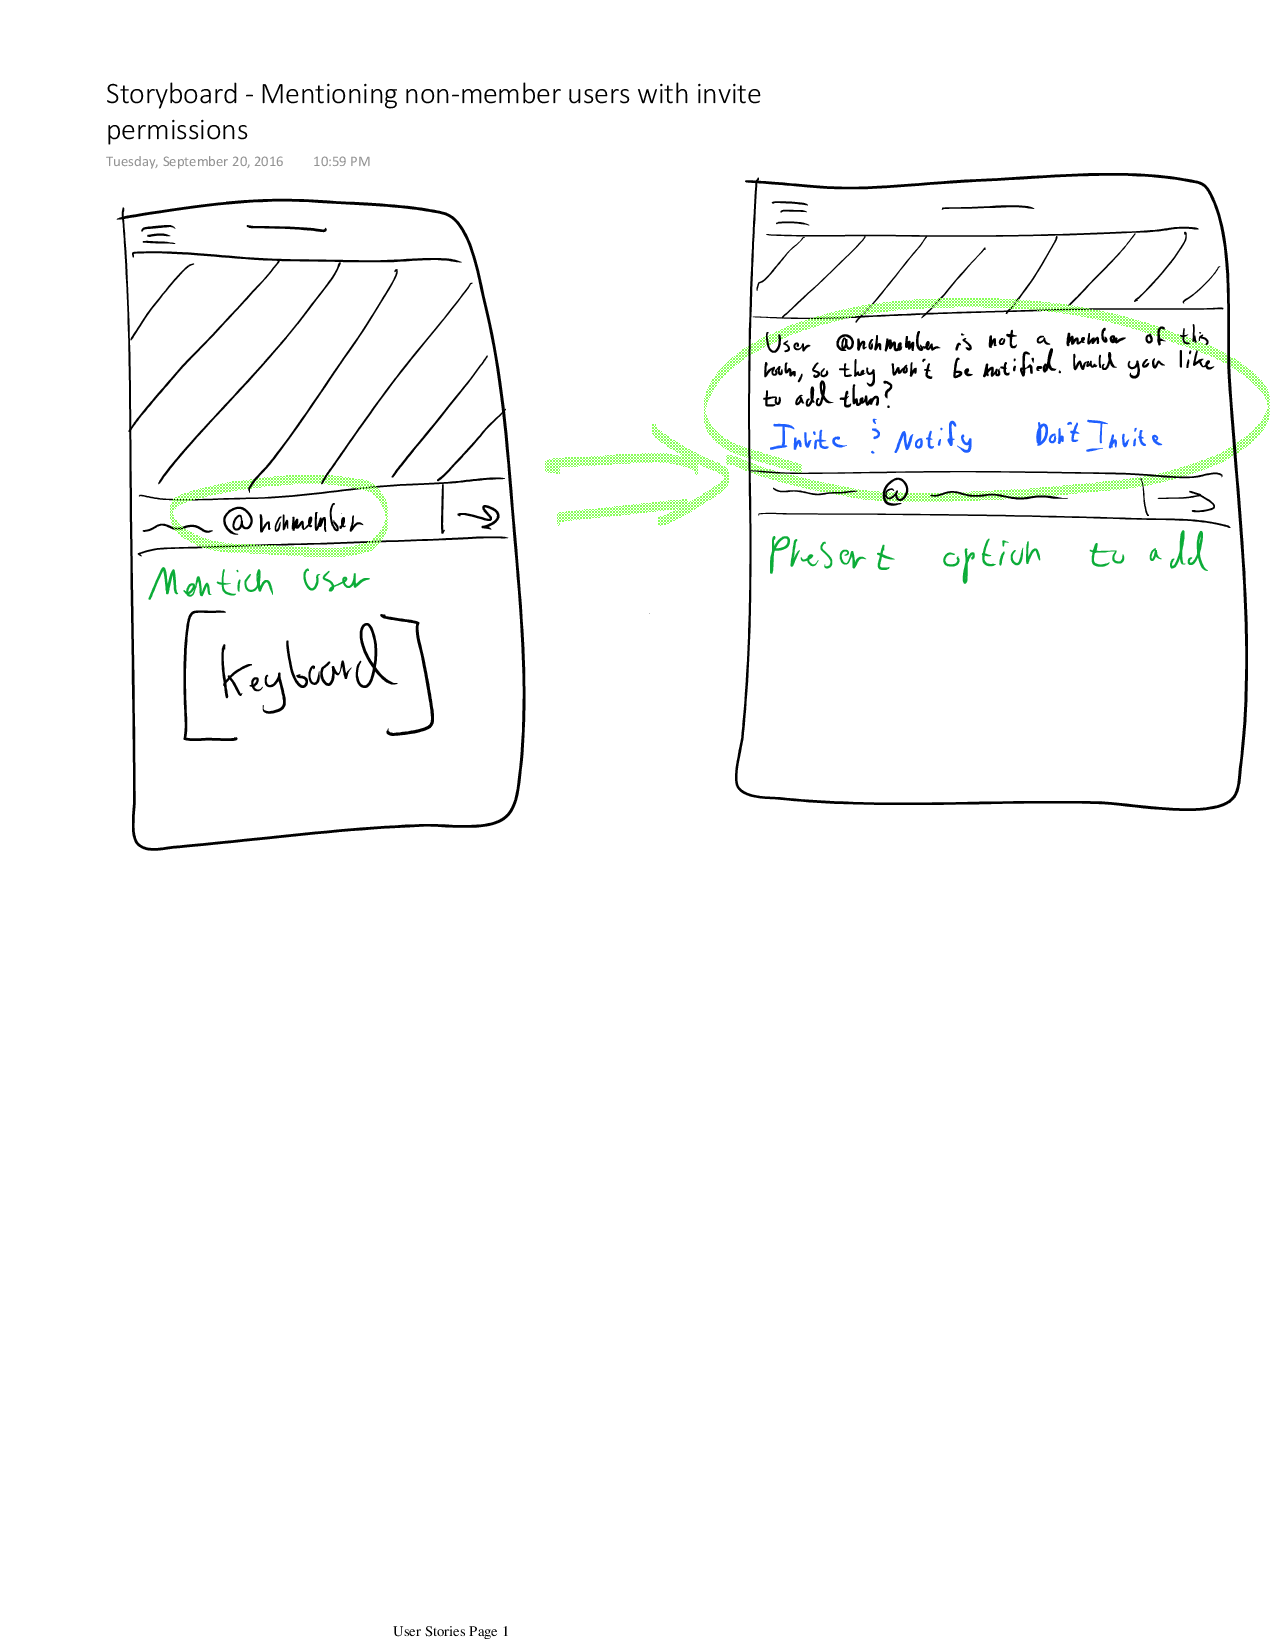 Storyboard - Mentioning non-member users with invite
permissions
Tuesday, September 20, 2016 10:59 PM
@nonmember
Mention user
Keyboard
User @nonmember is not a member of this
room, so they won't be notified. Would you like
to add them?
Invite & Notify Don't Invite
@
Present option to add
User Stories Page 1